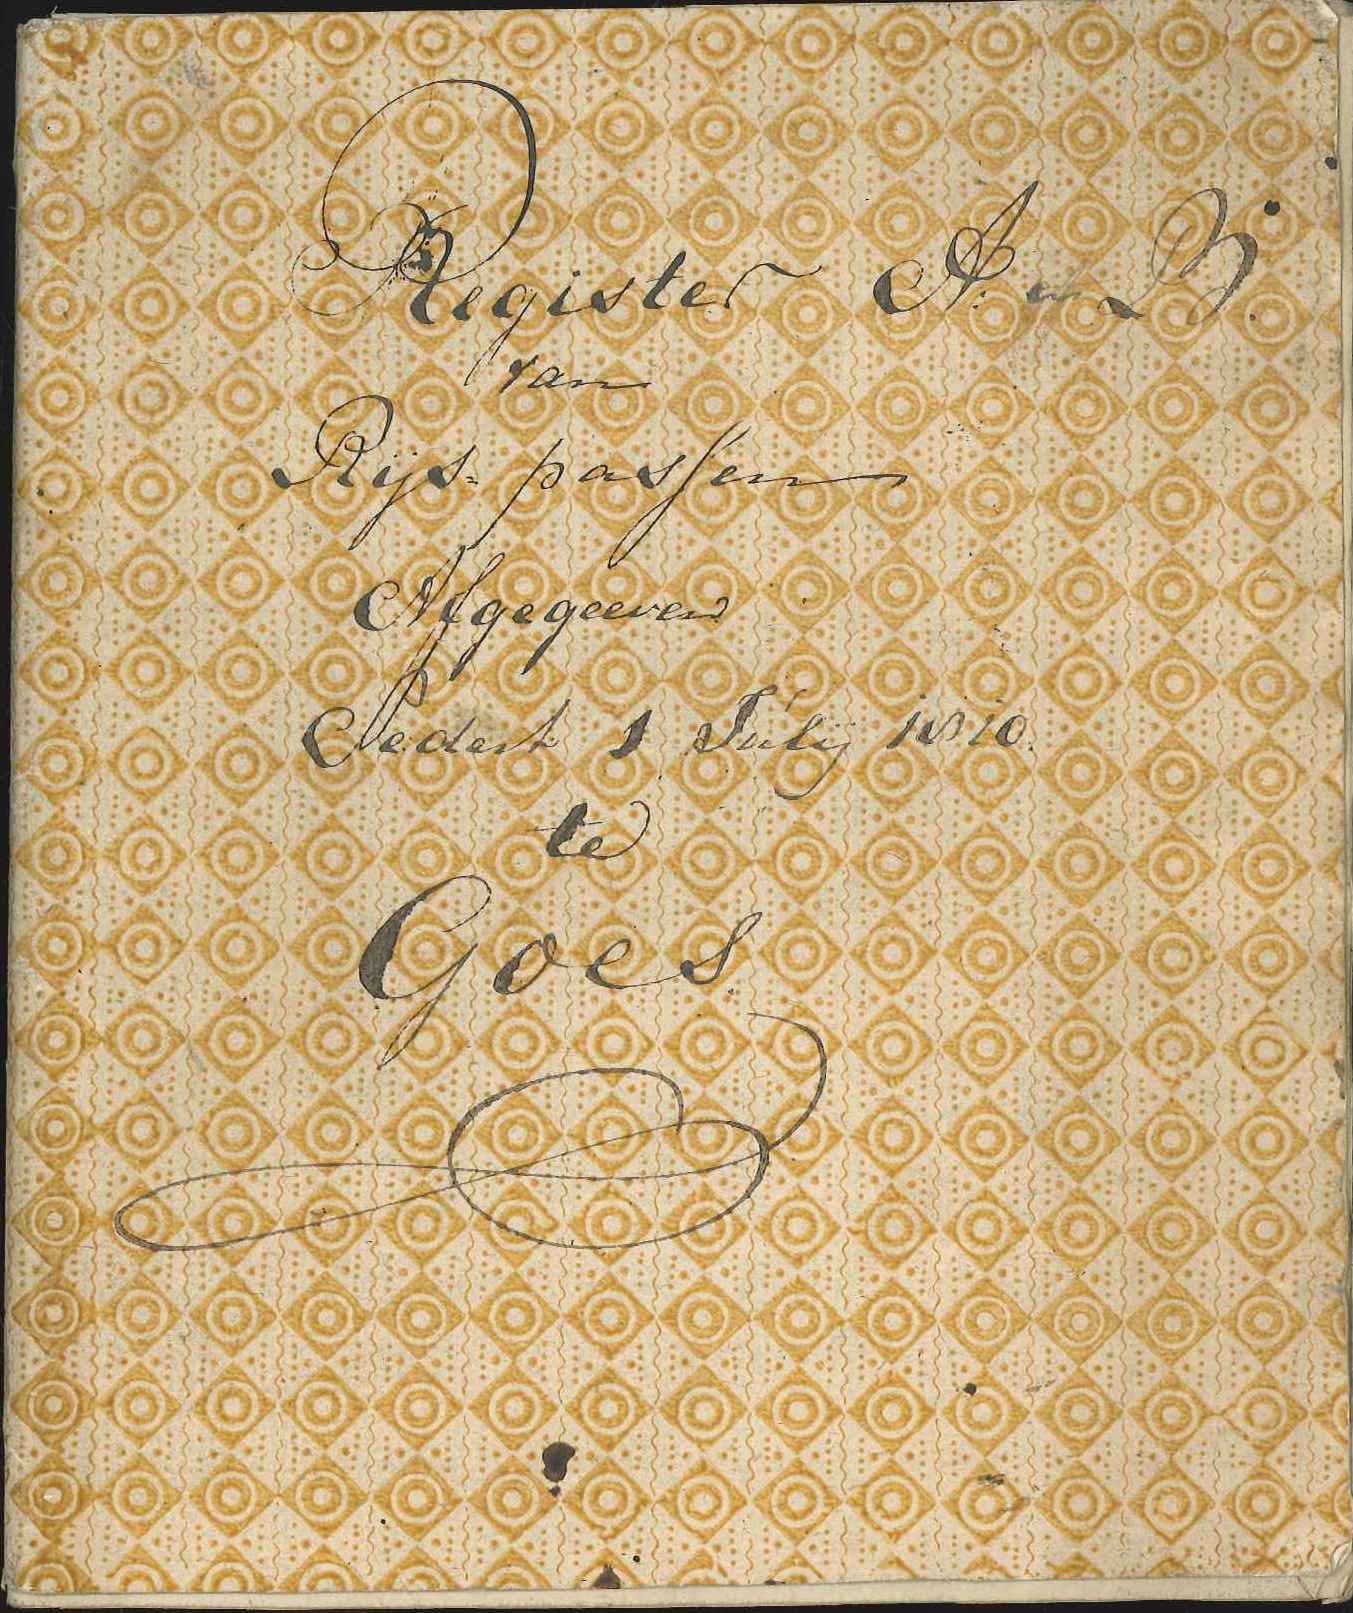 Register A. en B.
van
Rijs= passen
Afgegeeven
Sedert 1 Julij 1810.
te
Goes.